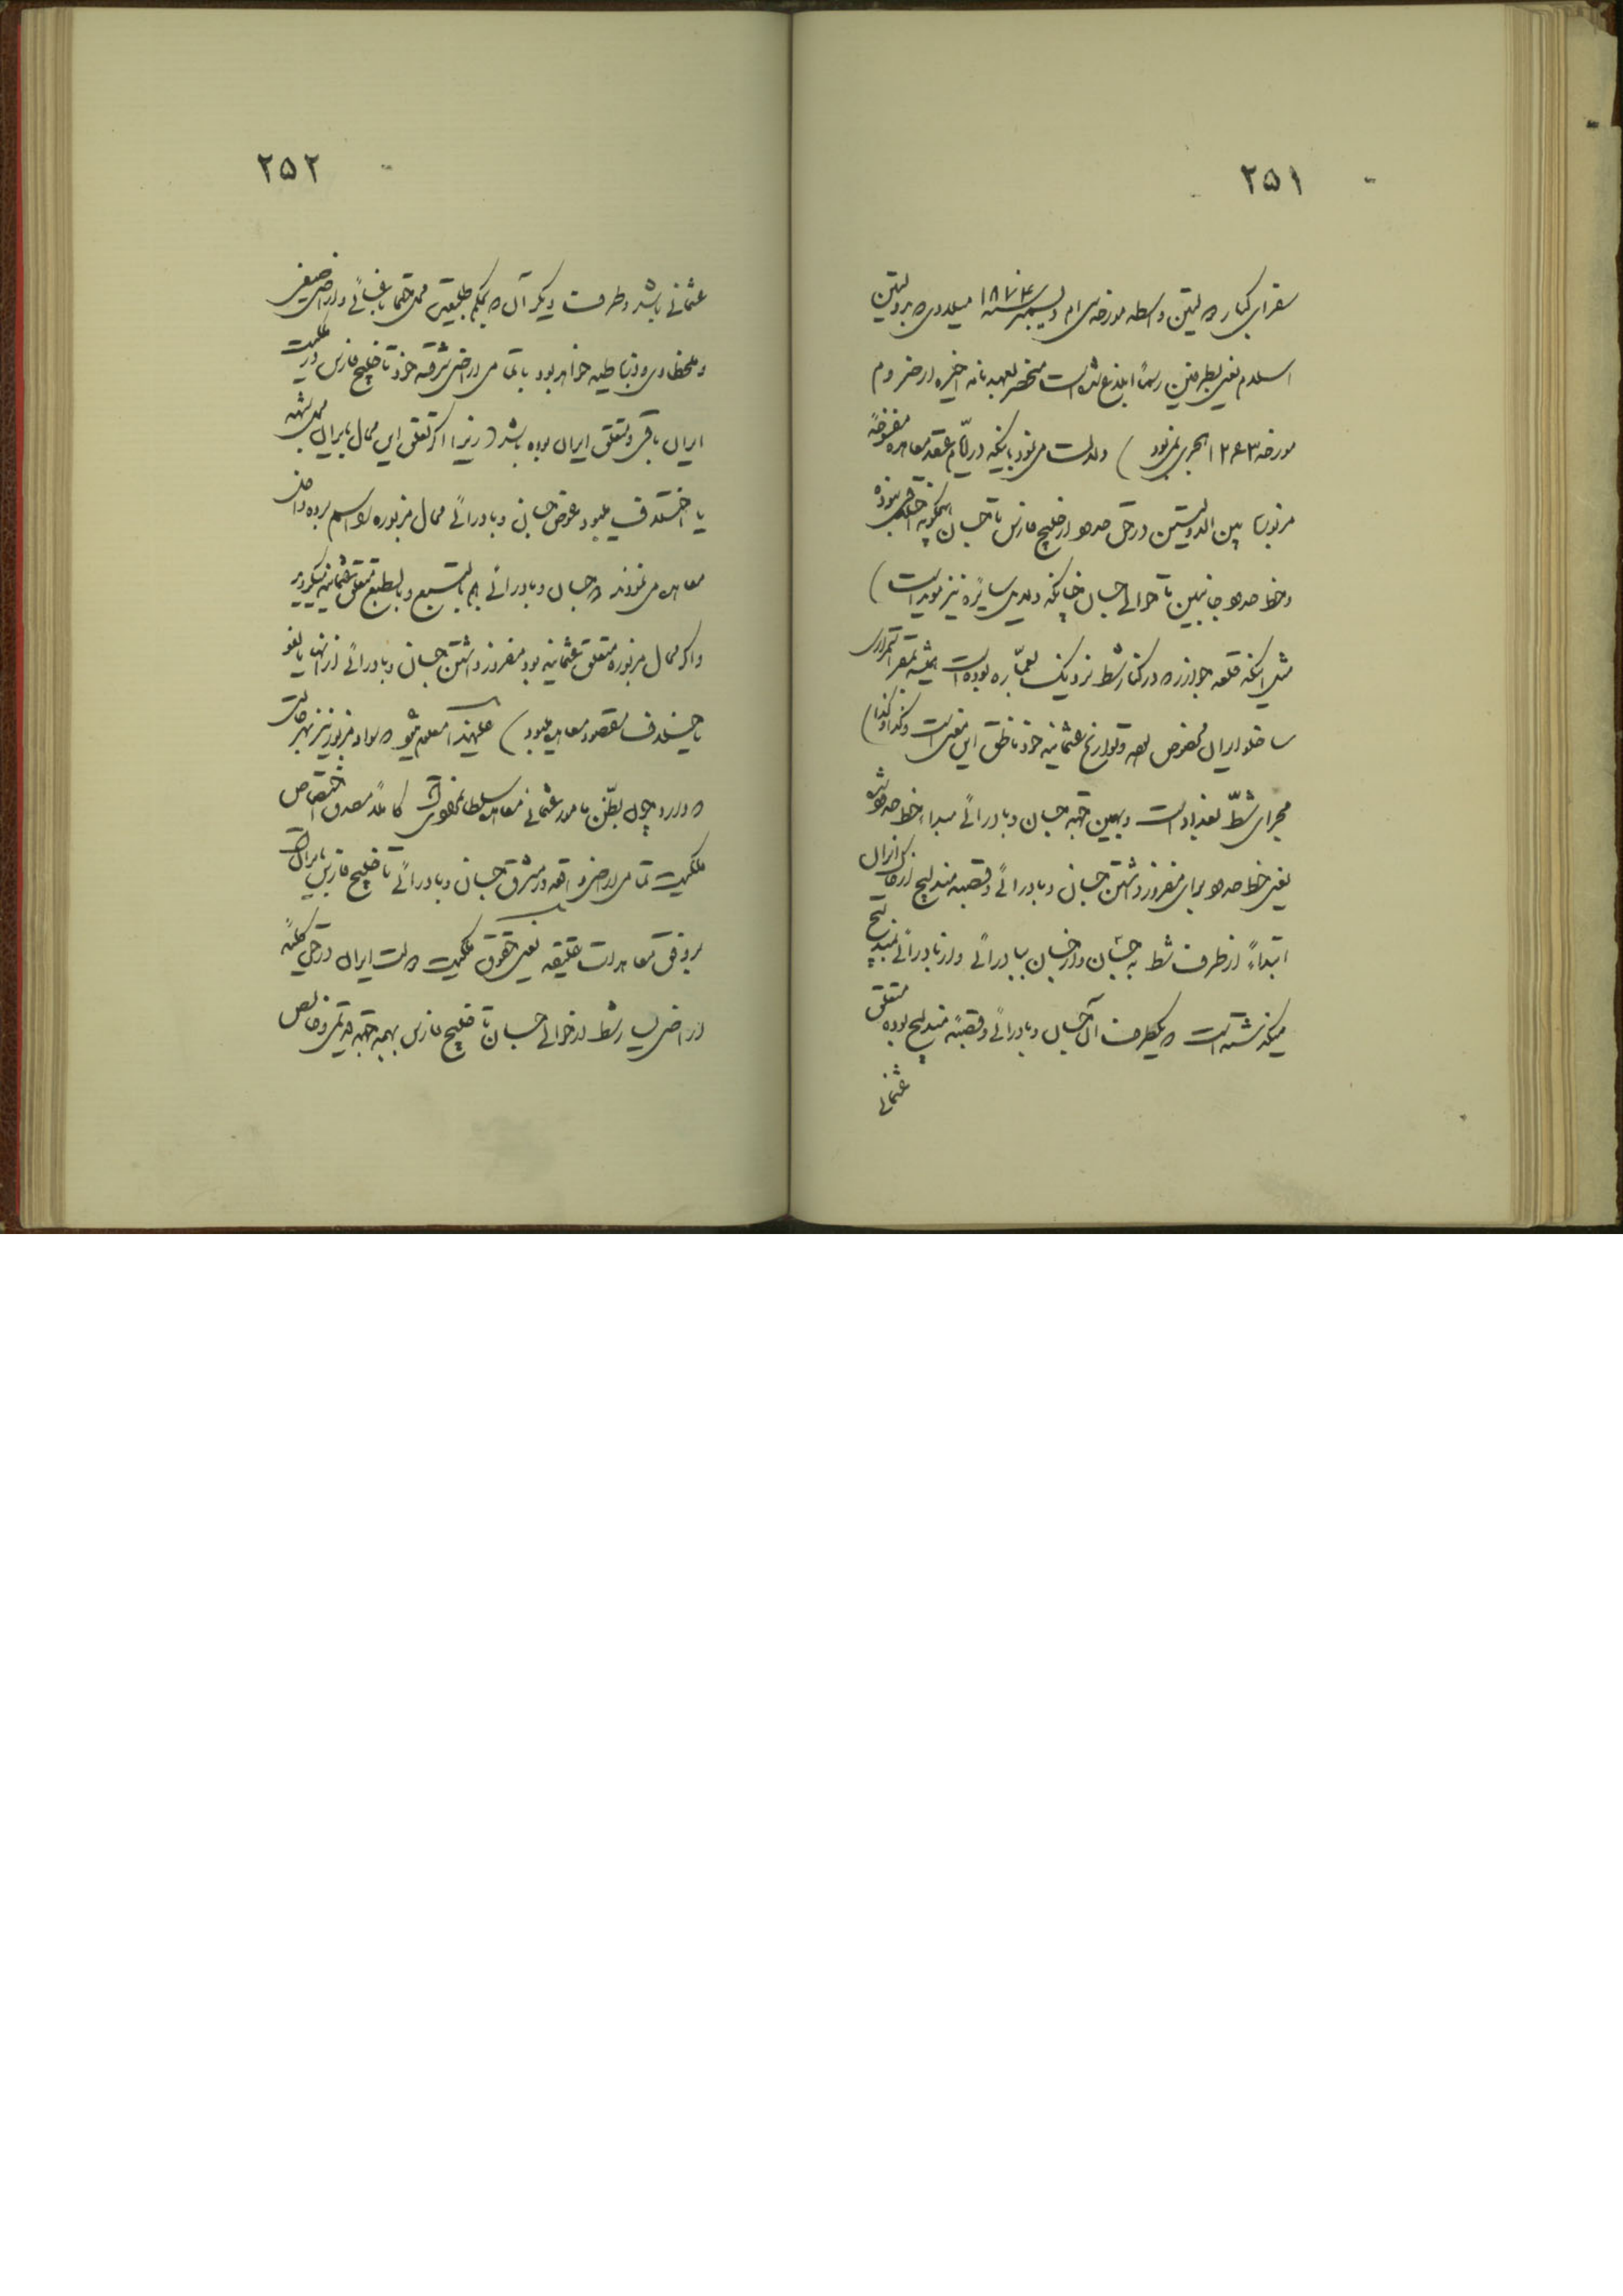 ۲۵۱
سفرای کبار دولتین واسطه مورخه سی ام دیسمبر سنه ۱۸۷۴ میلادی که بدولتین
اسلام یعنی بطرفین رسماً ابلاغ شده است منحصر بعهدنامه اخیره ارضروم
مورخه ۱۲۶۳ هجری نمیبود) دلالت می نمود باینکه در ایام عقد معاهده
مزبور ما بین الدولتین در حق حدود از خلیج فارس تا جسان هیچگونه اختلافی نبوده
و خط حدود جانبین تا حوالی جسان چنانکه دلایل سایره نیز موید است)
مثل اینکه قلعه جوازر که در کنار شط نزدیک بعماره بوده است همیشه مقر
ساخلو ایران مخصوص بوده و تواریخ عثمانیه خود ناطق این معنی است و کذا و کذا)
مجرای شط بغداد است و بهمین جهة جسان و بادرائی مبداء خط حدود شده
یعنی خط حدود برای مفروز داشتن جسان و بادرائی و قصبه مندلیج از خاک ایران
ابتداءً از طرف شط به جسان و از جسان ببادرائی و از بادرائی بمندلیج
میگذشته است که یکطرف آن جسان و بادرائی و قصبه مندلیج بوده متعلق
عثمانی
۲۵۲
عثمانی باشد و طرف دیگر آن که بحکم طبیعت محل حتماً باغسائی و اراضی صیفی
و ملخطاوی و ذناطیه خواهد بود با تمامی اراضی شرقیه خود تا خلیج فارس در ملکیت
ایران باقی و متعلق ایران بوده باشد (زیرا اگر تعلق این محال بایران محل شبهه
یا اختلاف میبود عوض جسان و بادرائی محال مزبوره را اسم برده داخل
معاهده می نمودند که جسان و بادرائی هم بالتبع و بالطبع متعلق عثمانیه میگردید
و اگر محال مزبوره متعلق عثمانیه بود مفروز داشتن جسان و بادرائی از آنها یا لغو
یا خلاف مقصود معاهده میبود) علیهذا معلوم میشود که مواد مزبور نیز بهر حالت
که دارد چون بطن مأمور عثمانی معاهده سلطانمراد است کاملاً مصدق اختصاص
ملکیت تمامی اراضی واقعه در مشرق جسان و بادرائی تا خلیج فارس بایران است
بر وفق معاهدات عتیقه یعنی حقوق ملکیت دولت ایران در حق کلیه
اراضی یسار شط از حوالی جسان تا خلیج فارس بهمه جهة قدیمی و خالص